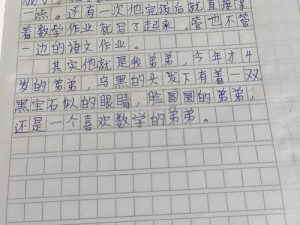 一点。还有一次他完饭后就直接拿
着数学作业就写了起来，管也不管
一边的语文作业。
其实他就是我弟弟，今年才4
岁的弟弟，乌黑的头发下有着一双
黑宝石似的眼睛，脸圆圆的弟弟，
还是一个喜欢数学的弟弟。